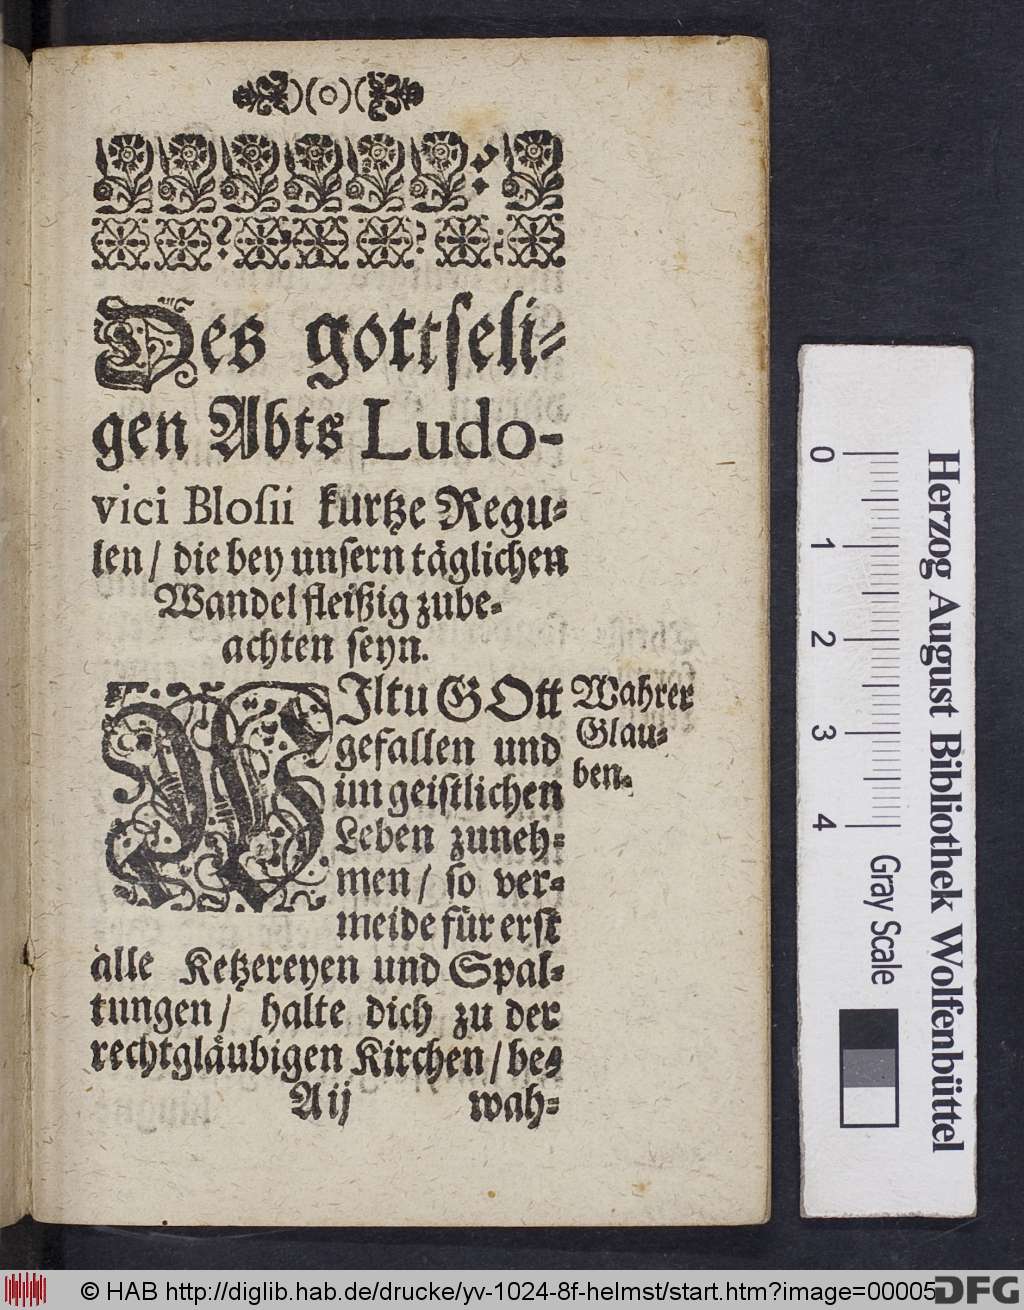 Des gottseli-
gen Abts Ludo-
vici Blosii kurtze Regu-
len / die bey unsern täglichen
Wandel fleißig zube-
achten seyn.
WIltu GOtt
gefallen und
im geistlichen
Leben zuneh-
men / so ver-
meide für erst
alle Ketzereyen und Spal-
tungen / halte dich zu der
rechtgläubigen Kirchen / be-
Wahrer
Glau-
ben.
Aij wah-
0 1 2 3 4 Gray Scale
Herzog August Bibliothek Wolfenbüttel
© HAB http://diglib.hab.de/drucke/yv-1024-8f-helmst/start.htm?image=00005
DFG